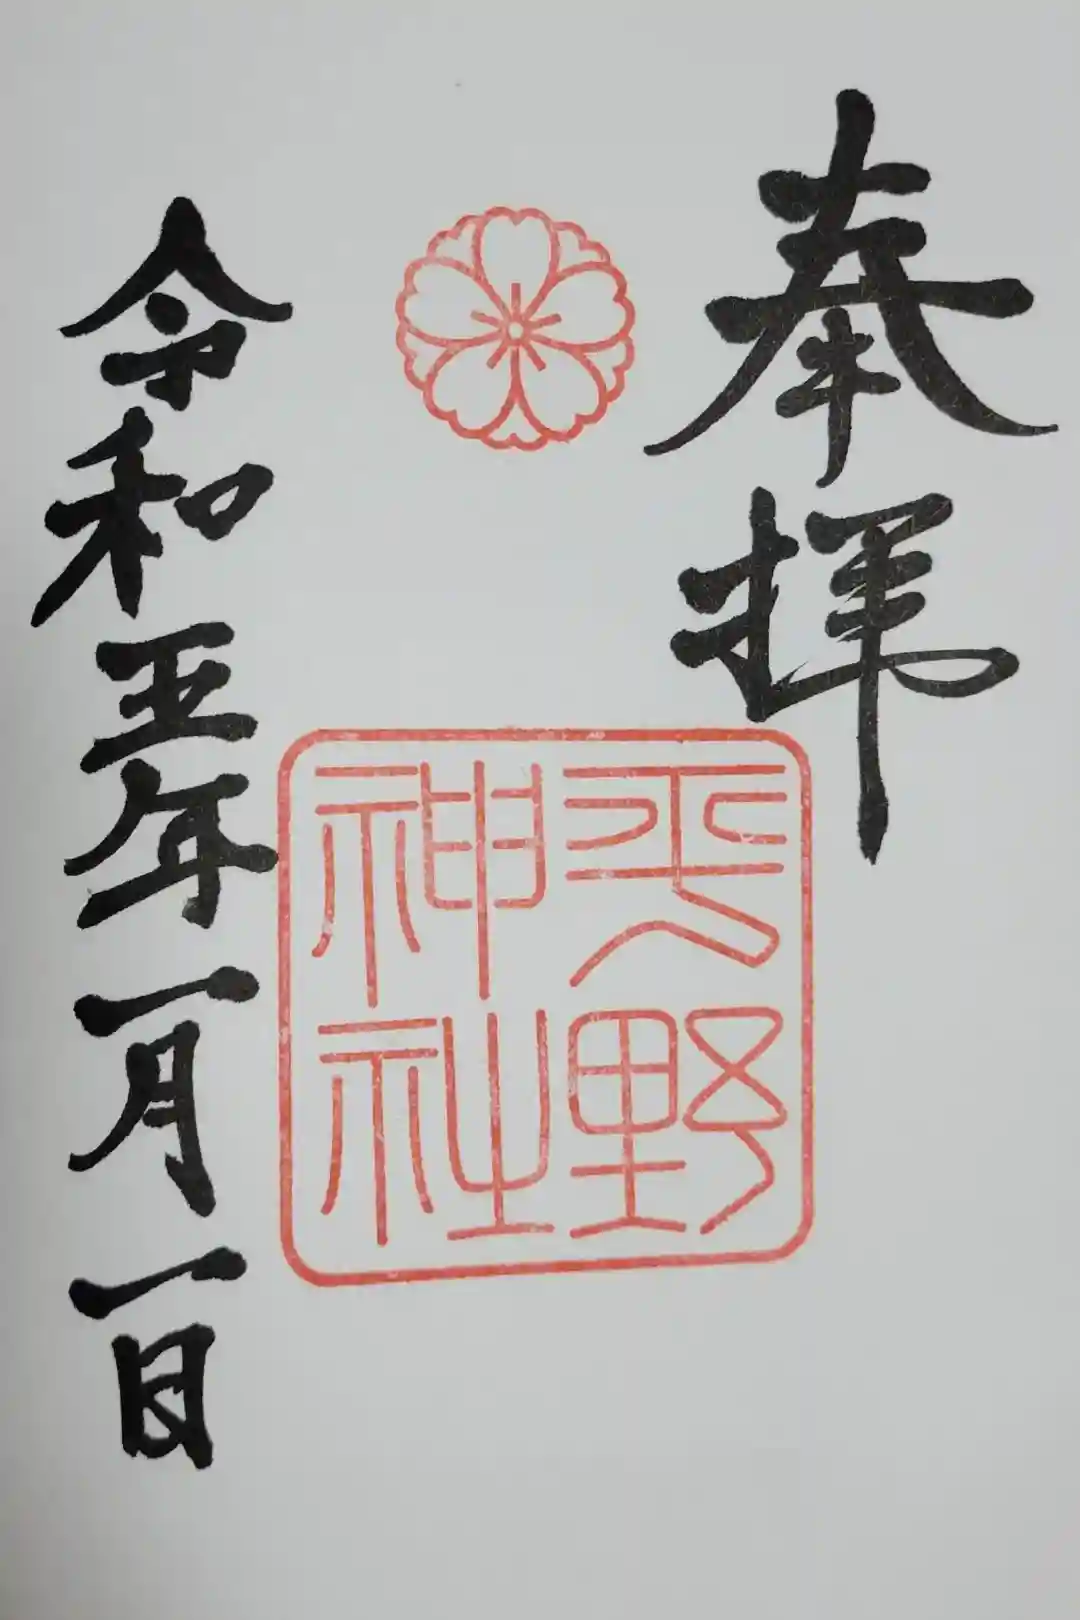 奉拝
平野
神社
令和五年一月一日